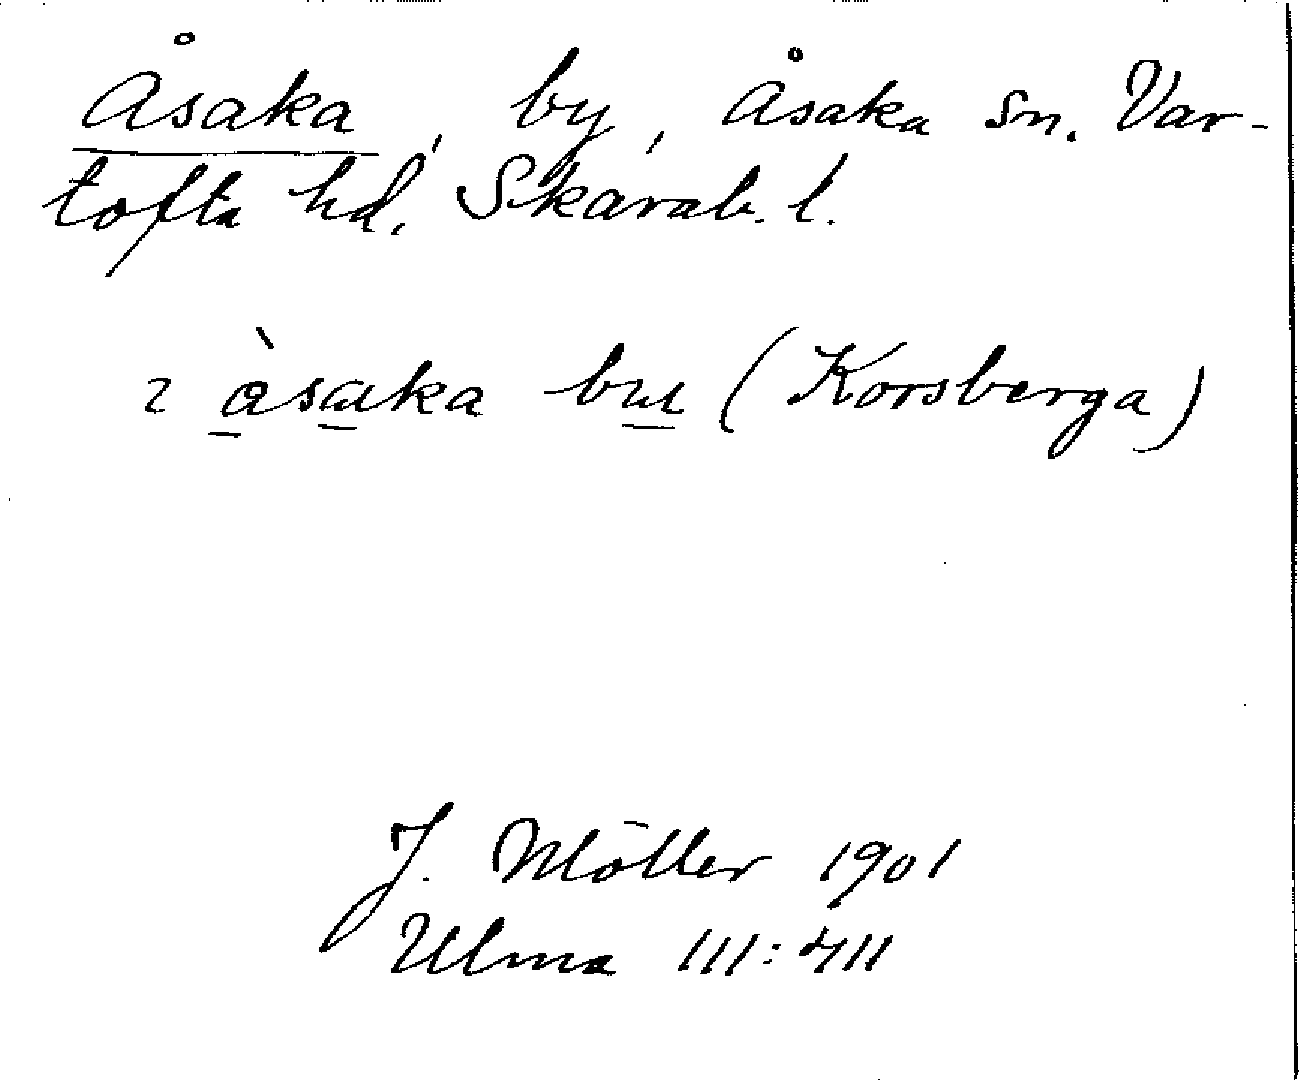 Åsaka, by, Åsaka sn. Var-
tofta hd. Skarab. l.
ı å̀saka bʉ (Korsberga)
J. Möller 1901
Ulma 111:411